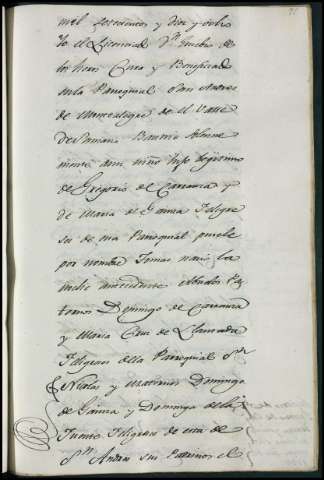 mil setecientos y diez y ocho
Yo el Licenciado Dn
los heros Cura y Beneficiado
en la Parroquial San Andres
de Montealegre de el Valle
de Somano Bautice solemne
mente aun niño hijo legitimo
de Gregorio de Carranza y
de Maria de Gaviña Feligre
ses de esta Parroquial pusele
por nombre Tomas nacio la
noche antecedente Abuelos Pa
ternos Domingo de Carranza
y Maria Cruz de Llamada
Feligreses de la Parroquial Sn
Nicolas y Maternos Domingo
de Gaviña y Dominga de la
Fuente Feligreses de esta de
Sn Andres sus Padrinos el